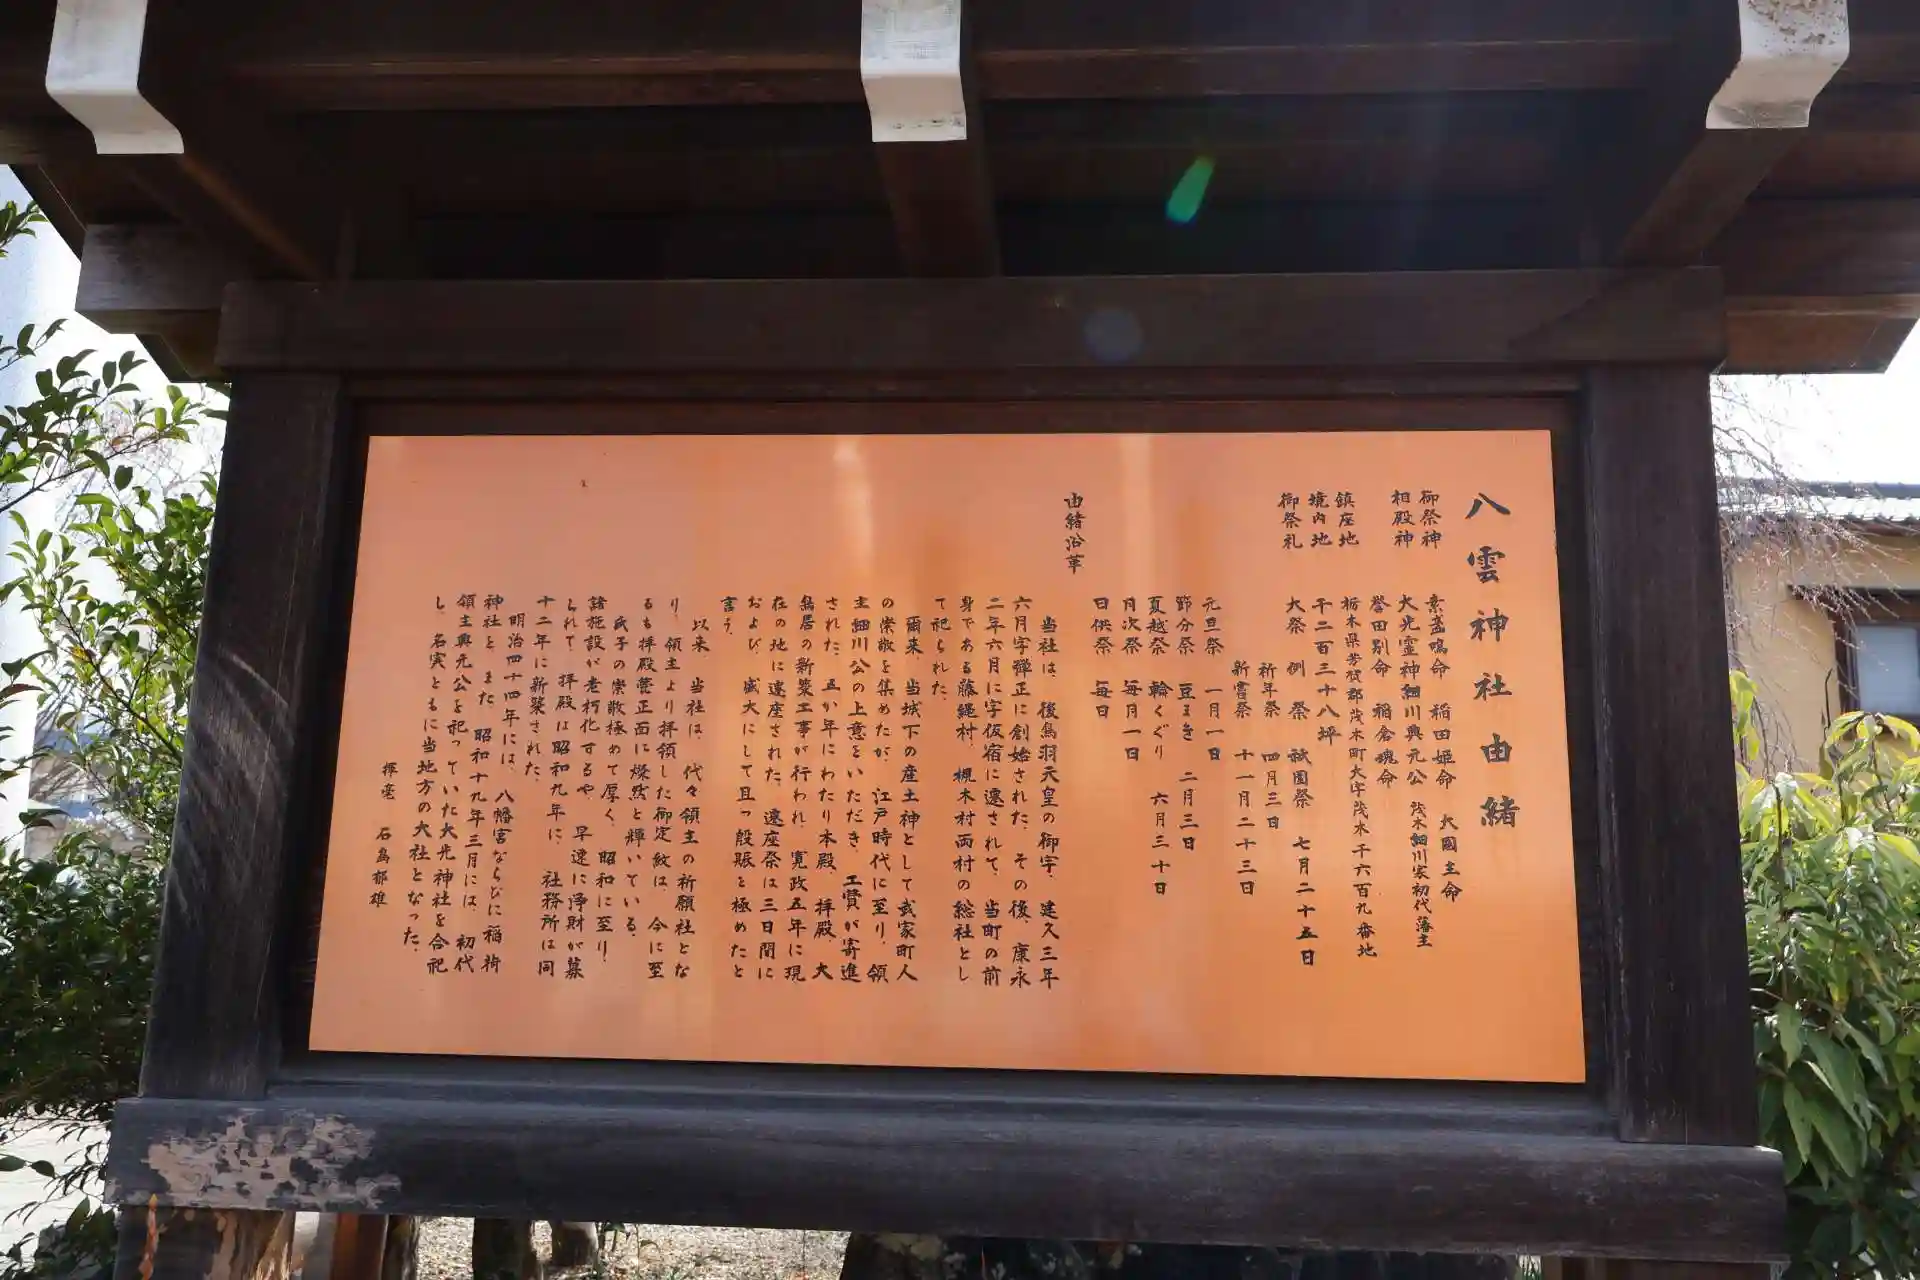 八雲神社由緒
御祭神 素盞嗚命 稲田姫命 大國主命
相殿神 大光霊神細川興元公 茂木細川家初代藩主
誉田別命 稲倉魂命
鎮座地 栃木県芳賀郡茂木町大字茂木千六百九番地
境内地 千二百三十八坪
御祭礼 大祭 例祭 祇園祭 七月二十五日
祈年祭 四月三日
新嘗祭 十一月二十三日
元旦祭 一月一日
節分祭 豆まき 二月三日
夏越祭 輪くぐり 六月三十日
月次祭 毎月一日
日供祭 毎日
由緒沿革
当社は、後鳥羽天皇の御宇、建久三年
六月字弾正に創始された。その後、康永
二年六月に字仮宿に遷されて、当町の前
身である藤縄村、槻木村両村の総社とし
て祀られた。
爾来、当城下の産土神として武家町人
の崇敬を集めたが、江戸時代に至り、領
主細川公の上意をいただき、工費が寄進
された。五か年にわたり本殿、拝殿、大
鳥居の新築工事が行われ、寛政五年に現
在の地に遷座された。遷座祭は三日間に
および、盛大にして且つ殷賑と極めたと
言う。
以来、当社は、代々領主の祈願社とな
り、領主より拝領した御定紋は、今に至
るも拝殿甍正面に燦然と輝いている。
氏子の崇敬極めて厚く、昭和に至り、
諸施設が老朽化するや、早速に浄財が募
られて、拝殿は昭和九年に、社務所は同
十二年に新築された。
明治四十四年には、八幡宮ならびに稲荷
神社と、また、昭和十九年三月には、初代
領主興元公を祀っていた大光神社を合祀
し、名実ともに当地方の大社となった。
揮毫 石島郁雄